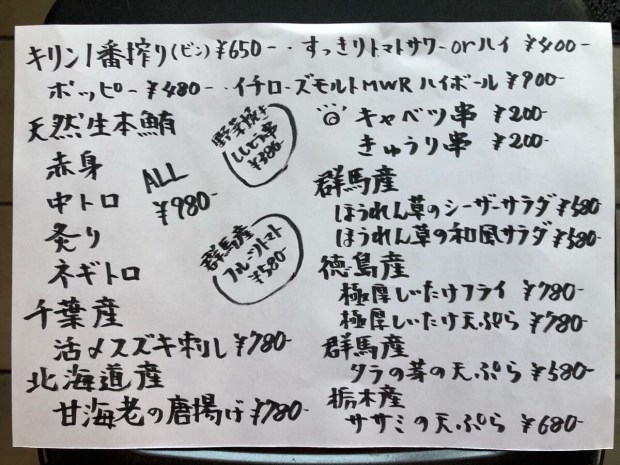 キリン1番搾り(ビン)¥650-・すっきりトマトサワーorハイ ¥400-
ホッピー ¥480-・イチローズモルトMWRハイボール ¥900-
天然生本鮪
赤身
中トロ
炙り
ネギトロ
ALL
¥980-
千葉産
活〆スズキ刺し ¥780-
北海道産
甘海老の唐揚げ ¥780-
野菜焼き
ししとう串
¥380-
群馬産
フルーツトマト
¥580-
キャベツ串 ¥200-
きゅうり串 ¥200-
群馬産
ほうれん草のシーザーサラダ ¥580-
ほうれん草の和風サラダ ¥580-
徳島産
極厚しいたけフライ ¥780-
極厚しいたけ天ぷら ¥780-
群馬産
タラの芽の天ぷら ¥580-
栃木産
ササミの天ぷら ¥680-